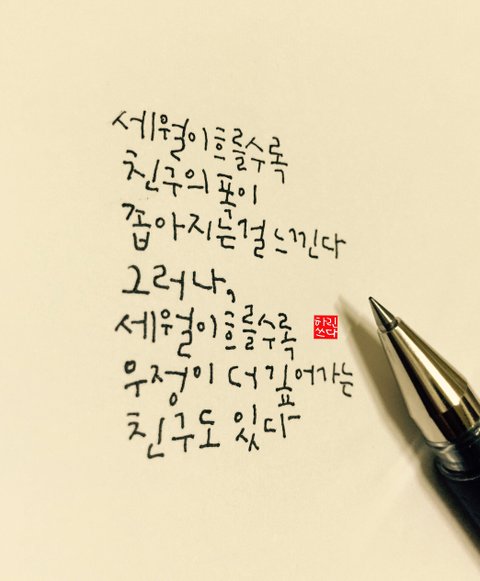 세월이 흐를수록
친구의 폭이
좁아지는걸 느낀다
그러나,
세월이 흐를수록
우정이 더 깊어가는
친구도 있다
하린
쓰다